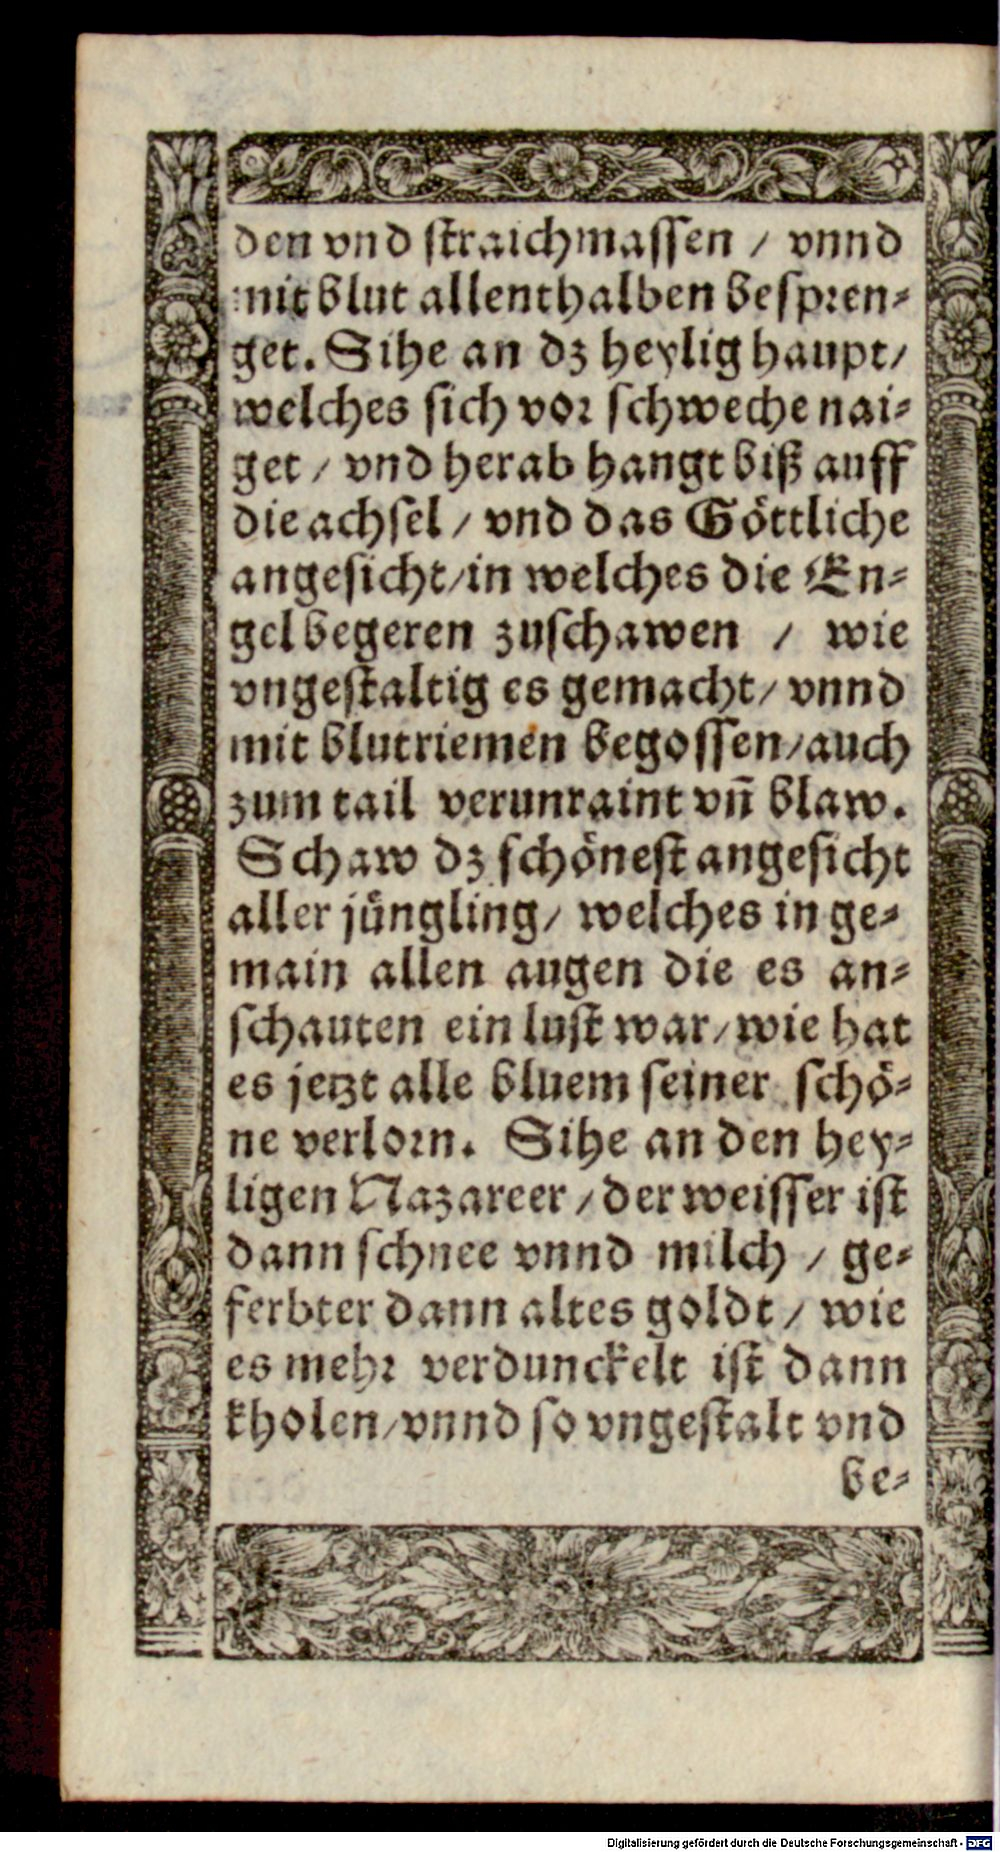 den vnd straichmassen / vnnd
mit blut allenthalben bespren⸗
get. Sihe an dz heylig haupt/
welches sich vor schweche nai⸗
get / vnd herab hangt biß auff
die achsel / vnd das Göttliche
angesicht/in welches die En⸗
gel begeren zuschawen / wie
vngestaltig es gemacht/ vnnd
mit blutriemen begossen/auch
zum tail verunraint vñ blaw.
Schaw dz schönest angesicht
aller jüngling/ welches in ge⸗
main allen augen die es an⸗
schauten ein lust war/wie hat
es jetzt alle bluem seiner schö⸗
ne verlorn. Sihe an den hey⸗
ligen Nazareer / der weisser ist
dann schnee vnnd milch / ge⸗
ferbter dann altes goldt / wie
es mehr verdunckelt ist dann
kholen/vnnd so vngestalt vnd
be⸗
Digitalisierung gefördert durch die Deutsche Forschungsgemeinschaft - DFG